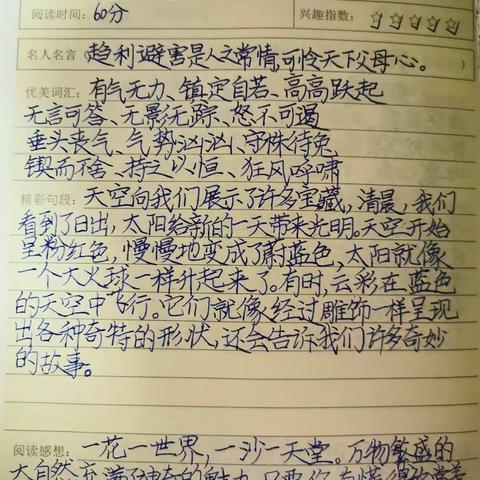 阅读时间：60分 兴趣指数：
名人名言（趋利避害是人之常情,可怜天下父母心。）
优美词汇：有气无力、镇定自若、高高跃起
无言可答、无影无踪、怒不可遏
垂头丧气、气势汹汹、守株待兔
锲而不舍、持之以恒、狂风呼啸
精彩句段：天空向我们展示了许多宝藏,清晨,我们
看到了日出,太阳给新的一天带来光明。天空开始
呈粉红色,慢慢地变成了蔚蓝色,太阳就像
一个大火球一样升起来了。有时,云彩在蓝色
的天空中飞行。它们就像经过雕饰一样呈现
出各种奇特的形状,还会告诉我们许多奇妙
的故事。
阅读感想：一花一世界,一沙一天堂。万物繁盛的
大自然充满了神奇的魅力,只要你有